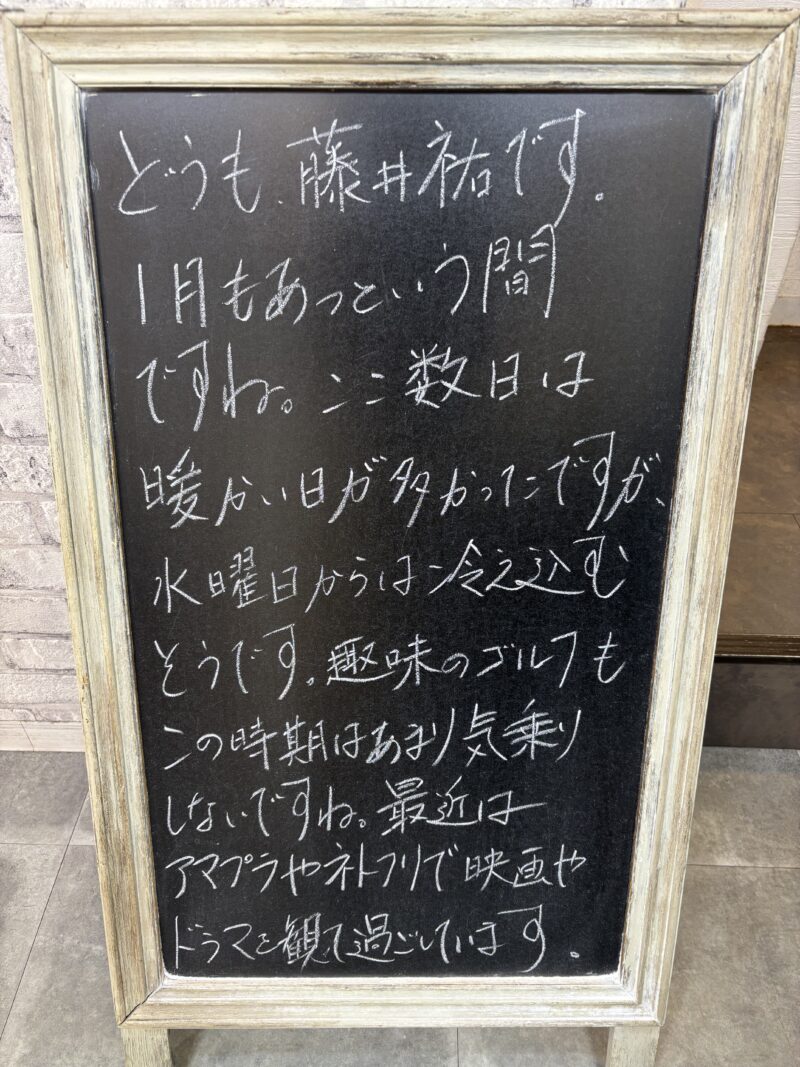 どうも、藤井祐です。
1月もあっという間
ですね。ここ数日は
暖かい日が多かったですが、
水曜日からは冷え込む
そうです。趣味のゴルフも
この時期はあまり気乗り
しないですね。最近は
アマプラやネトフリで映画や
ドラマを観て過ごしています。